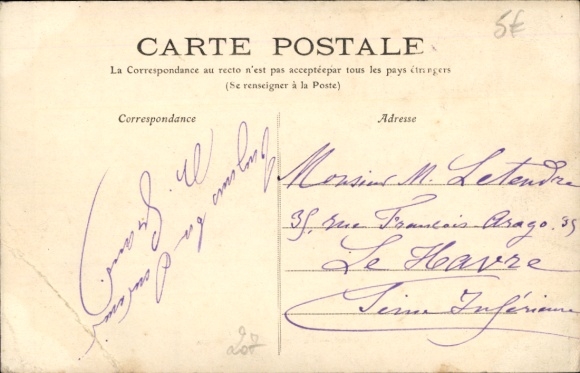 5€
CARTE POSTALE
La Correspondance au recto n'est pas acceptéepar tous les pays étrangers
(Se renseigner à la Poste)
Correspondance
Adresse
Monsieur M. Letendre
35, rue Francois Arago. 35
Le Havre
Seine Inférieure
207